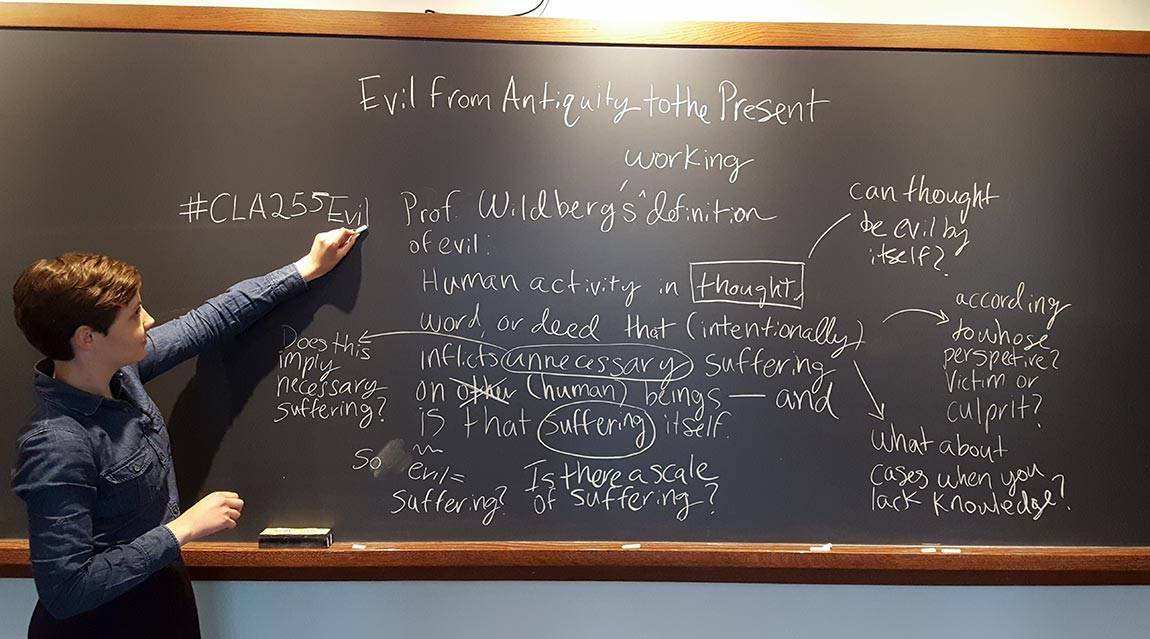 Evil from Antiquity to the Present
working
#CLA255Evil
Prof. Wildberg's ^ definition
of evil:
Human activity in thought,
word, or deed that (intentionally)
inflicts unnecessary suffering
on other (human) beings — and
is that suffering itself.
can thought
be evil by
itself?
according
to whose
perspective?
Victim or
culprit?
what about
cases when you
lack knowledge?
Does this
imply
necessary
suffering?
So evil =
suffering?
Is there a scale
of suffering?